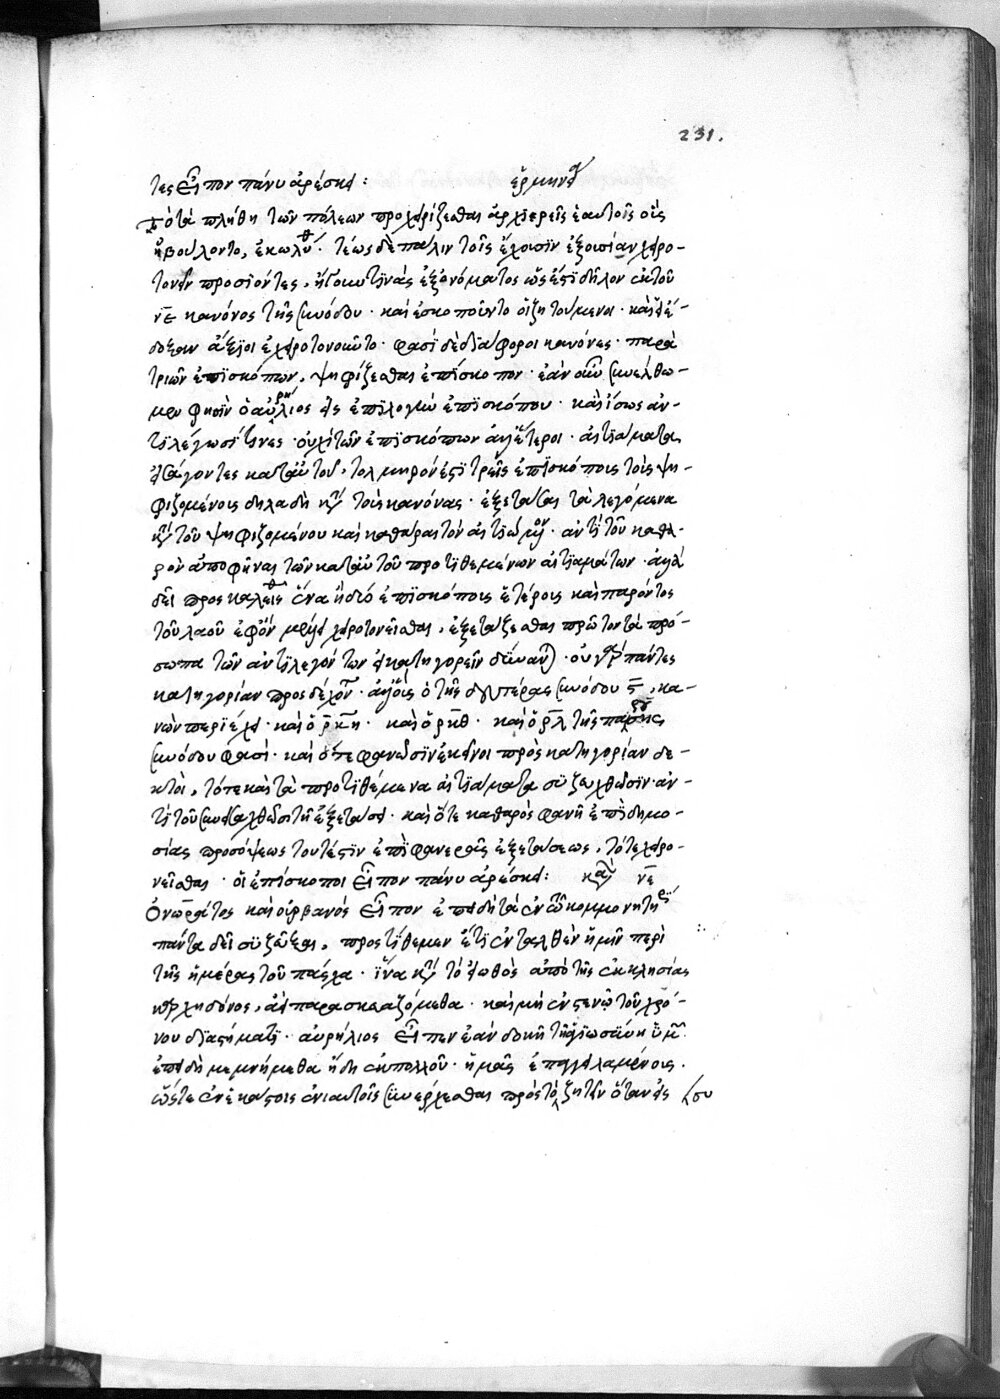 231.
τες εἶπον πάνυ ἀρέσκει: ἑρμηνεία
Τὸ τὰ πλήθη τῶν πόλεων προχειρίζεσθαι ἀρχιερεῖς ἑαυτοῖς οἷς
ἠβούλοντο, ἐκωλύθη· τέως δὲ πάλιν τοῖς ἔχουσιν ἐξουσίαν χειρο-
τονεῖν προσιόντες, ᾐτοῦντο τινὰς ἐξ ὀνόματος ὡς ἔστι δῆλον ἐκ τοῦ
νε κανόνος τῆς συνόδου· καὶ ἐσκοποῦντο οἱ ζητούμενοι· καὶ εἰ ἔ-
δοξαν ἄξιοι ἐχειροτονοῦντο· φασὶ δὲ διάφοροι κανόνες· παρὰ
τριῶν ἐπισκόπων, ψηφίζεσθαι ἐπίσκοπον· ἐὰν οὖν συνέλθω-
μεν φησὶν ὁ αὐρήλιος εἰς ἐπιλογὴν ἐπισκόπου· καὶ ἴσως ἀν-
τιλέγωσί τινες· οὐχὶ τῶν ἐπισκόπων ἀλλ' ἕτεροι· αἰτιάματα
ἐπάγοντες κατ' αὐτοῦ, τολμηρόν ἐστι τρεῖς ἐπισκόπους τοὺς ψη-
φιζομένους δηλαδὴ κατὰ τοὺς κανόνας· ἐξετάσαι τὰ λεγόμενα
κατὰ τοῦ ψηφιζομένου καὶ καθάραι τὸν αἰτιώμενον· ἀντὶ τοῦ καθα-
ρὸν ἀποφῆναι τῶν κατ' αὐτοῦ προτιθεμένων αἰτιαμάτων· ἀλλὰ
δεῖ προσκαλεῖσθαι ἕνα ἢ δύο ἐπισκόπους ἑτέρους καὶ παρόντος
τοῦ λαοῦ ἐφ' ὃν μέλλει χειροτονεῖσθαι, ἐξετάζεσθαι πρῶτον τὰ πρό-
σωπα τῶν ἀντιλεγόντων εἰ κατηγορεῖν δύνανται· οὐ γὰρ πάντες
κατηγορίαν προσδέχονται· ἀλλ' οὓς ὁ τῆς δευτέρας συνόδου ϛ, κα-
νὼν περιέχει· καὶ ὁ ρκη· καὶ ὁ ρκθ· καὶ ὁ ρλ τῆς παρούσης
συνόδου φασί· καὶ ὅτε φανῶσιν ἐκεῖνοι πρὸς κατηγορίαν δε-
κτοὶ, τότε καὶ τὰ προτιθέμενα αἰτιάματα συζευχθῶσιν· ἀν-
τὶ τοῦ συνεισαχθῶσι τῇ ἐξετάσει· καὶ ὅτε καθαρὸς φανῇ ἐπὶ δημο-
σίας προσόψεως τουτέστιν ἐπὶ φανερᾶς ἐξετάσεως, τότε χειρο-
νεῖσθαι· οἱ ἐπίσκοποι εἶπον πάνυ ἀρέσκει: κανὼν νε
Ὁνωράτος καὶ οὐρβανὸς εἶπον ἐπειδὴ τὰ ἐν τῷ κομμονητωρίῳ
πάντα δεῖ συζεῦξαι, προστίθεμεν ἔτι ἐνταλθὲν ἡμῖν περὶ
τῆς ἡμέρας τοῦ πάσχα· ἵνα κατὰ τὸ ἔθος ἀπὸ τῆς ἐκκλησίας
καρχηδόνος, ἀεὶ παρασκευαζόμεθα· καὶ μὴ ἐν στενῷ τοῦ χρό-
νου διαστήματι· αὐρήλιος εἶπεν ἐὰν δοκῇ τῇ ἁγιωσύνῃ ὑμῶν
ἐπειδὴ μεμνήμεθα ἤδη ἐκ πολλοῦ· ἡμᾶς ἐπαγγειλαμένους.
ὥστε ἐν ἑκάστοις ἐνιαυτοῖς συνέρχεσθαι πρὸς τὸ ζητεῖν ὅταν εἰς